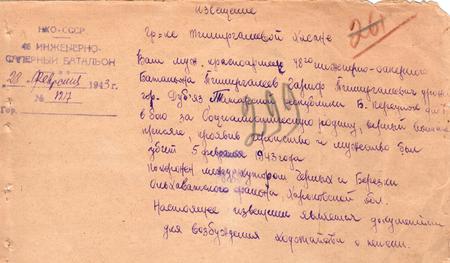 Извещение
НКО-СССР
48 ИНЖЕНЕРНО-
САПЕРНЫЙ БАТАЛЬОН
28 февраля 1943 г.
№
Гор.
261
Гр-ке Тимиргалеевой
Ваш муж, красноармеец 48го инженерно-саперного
батальона Тимиргалеев Гариф Тимиргалеевич урож.
гор. Дубъяз Татарской республики Б.
в бою за Социалистическую родину, верный воинской
присяге, проявив геройство и мужество был
убит 5 февраля 1943 года
299
похоронен между хутором Черных и Березки
Ольховатского района, Харьковской обл.
Настоящее извещение является документом
для возбуждения ходатайства о пенсии.